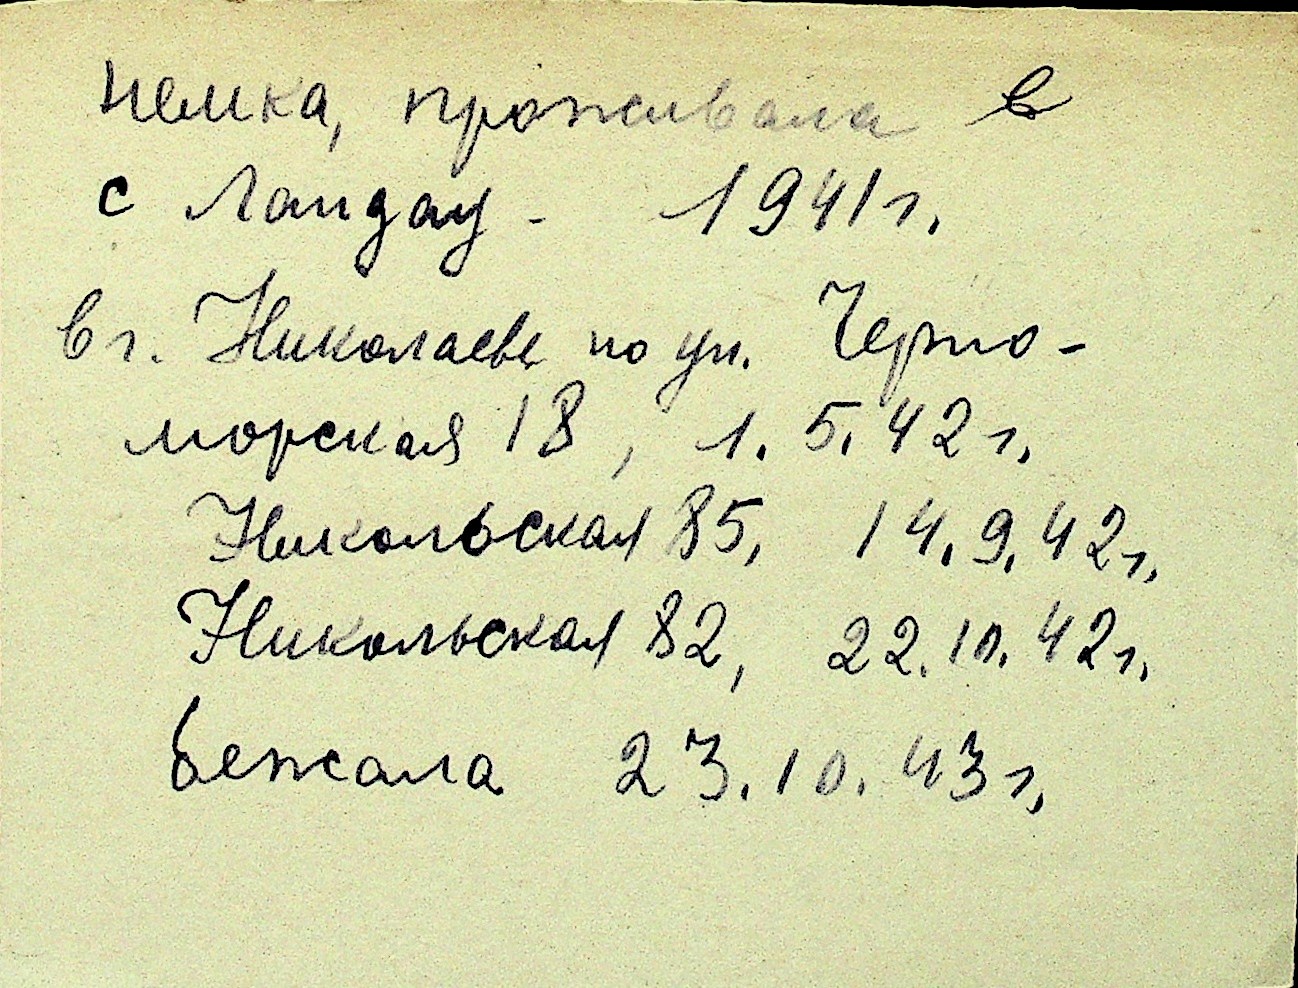 немка, проживала в
с Ландау - 1941 г.
в г. Николаеве по ул. Черно-
морская 18, 1.5.42 г.
Никольская 85, 14.9.42 г.
Никольская 82, 22.10.42 г.
бежала 23.10.43 г.